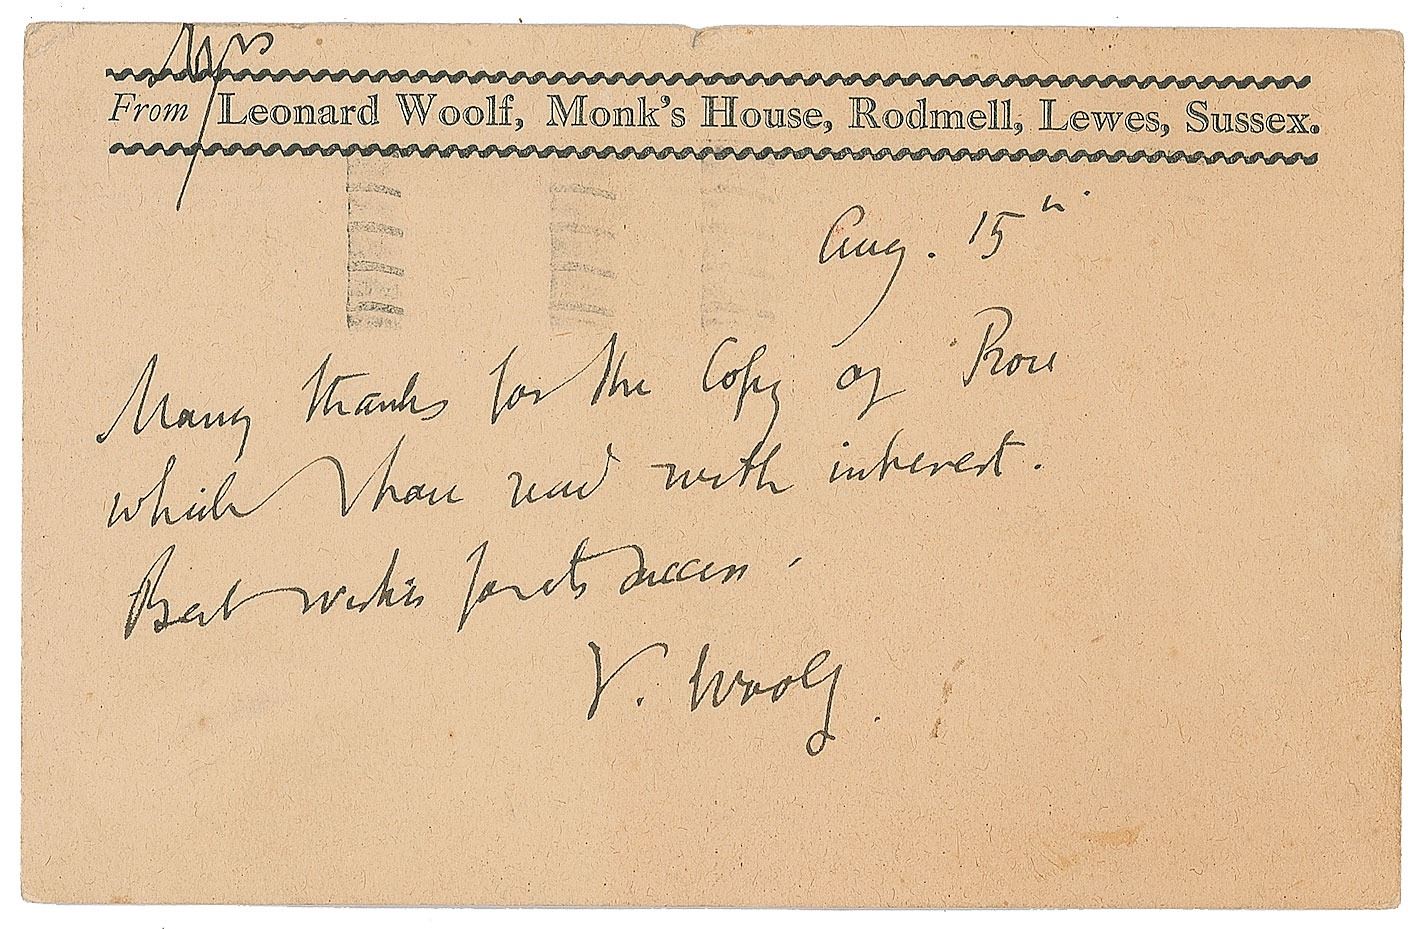 Mrs
From Leonard Woolf, Monk's House, Rodmell, Lewes, Sussex.
Aug. 15th
Many thanks for the Copy of Prose
which I have read with interest.
Best wishes for its success.
V. Woolf